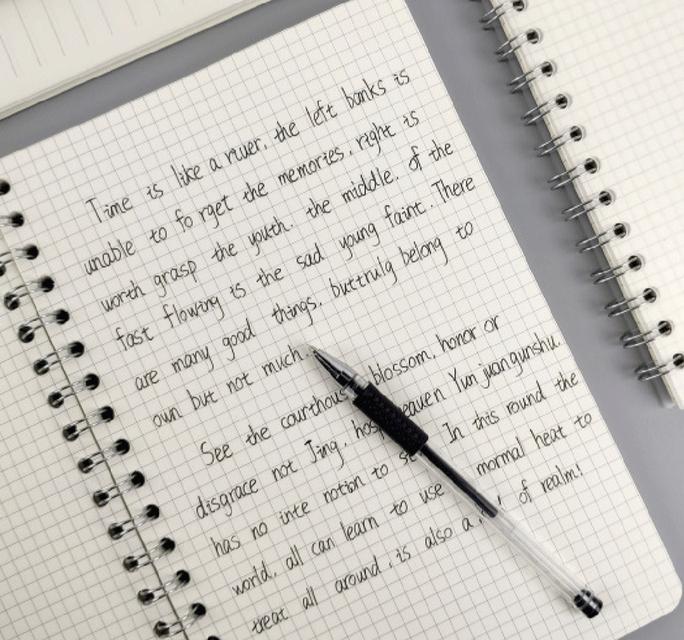 Time is like a river. the left banks is
unable to fo rget the memories. right is
worth grasp the youth. the middle. of the
fast flowing is the sad young faint. There
are many good things. buttrulg belong to
own but not much.
See the courthous blossom. honor or
disgrace not Jing. hosp eauen Yun juangunshu.
has no inte notion to In this round the
world. all can learn to use mormal heat to
treat all around. is also a of realm!